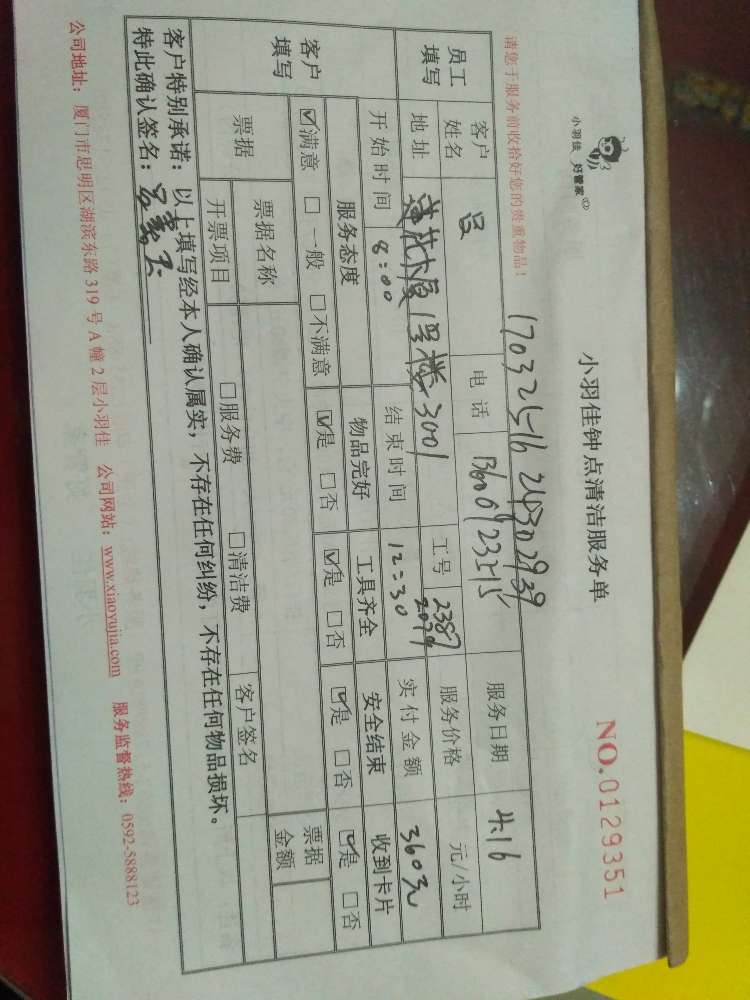 小羽佳 好管家
小羽佳钟点清洁服务单
NO.0129351
请您于服务前收拾好您的贵重物品!
员工填写 客户姓名 吕 电话 13600923215 服务日期 4.16
地址 莲花大厦1号楼3001 工号 2387 2079 服务价格 元/小时
开始时间 8:00 结束时间 12:30 实付金额 360元
客户填写 服务态度 物品完好 工具齐全 安全结束 收到卡片
☑满意 □一般 □不满意 ☑是 □否 ☑是 □否 ☑是 □否 ☑是 □否
票据 票据名称 票据金额
开票项目 □服务费 □清洁费 客户签名
客户特别承诺:以上填写经本人确认属实,不存在任何纠纷,不存在任何物品损坏。
特此确认签名:
公司地址:厦门市思明区湖滨东路319号A幢2层小羽佳 公司网站:www.xiaoyujia.com 服务监督热线:0592-5888123